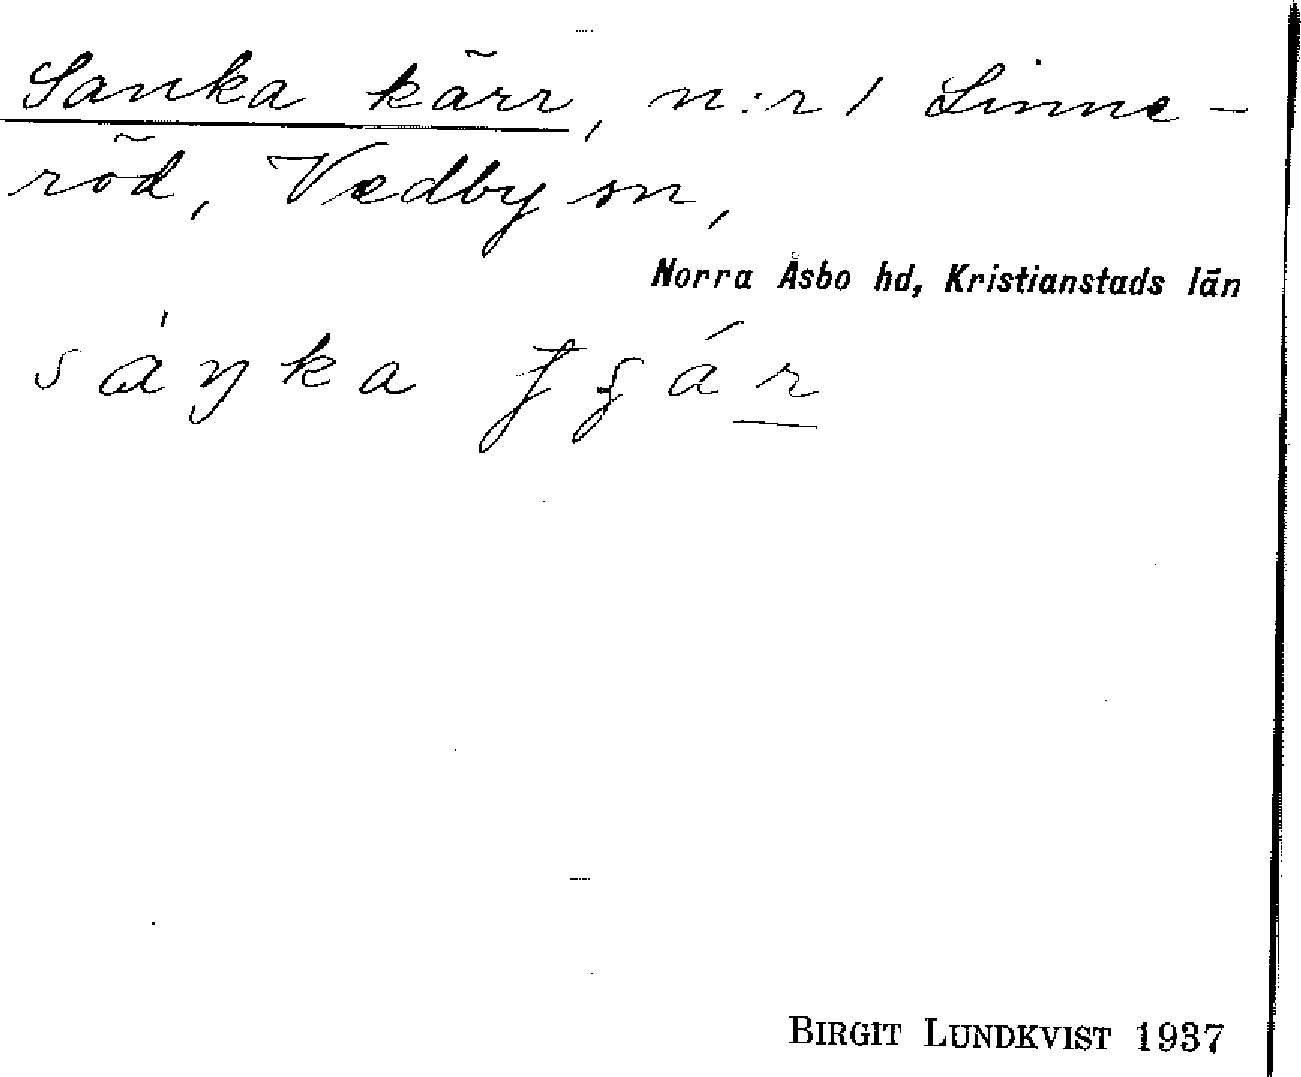 Sanka kärr, n:r 1 Linne-
röd, Vedby sn,
Norra Åsbo hd, Kristianstads län
BIRGIT LUNDKVIST 1937